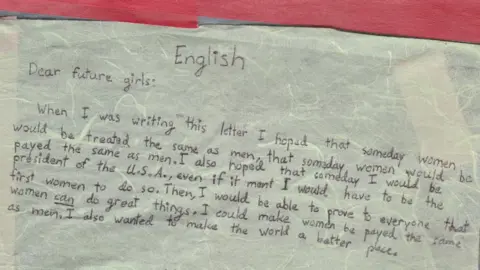 English
Dear future girls:
When I was writing this letter I hoped that someday women
would be treated the same as men, that someday women would be
payed the same as men. I also hoped that someday I would be
president of the U.S.A., even if it ment I would have to be the
first women to do so. Then, I would be able to prove to everyone that
women can do great things. I could make women be payed the same
as mein. I also wanted to make the world a better place.